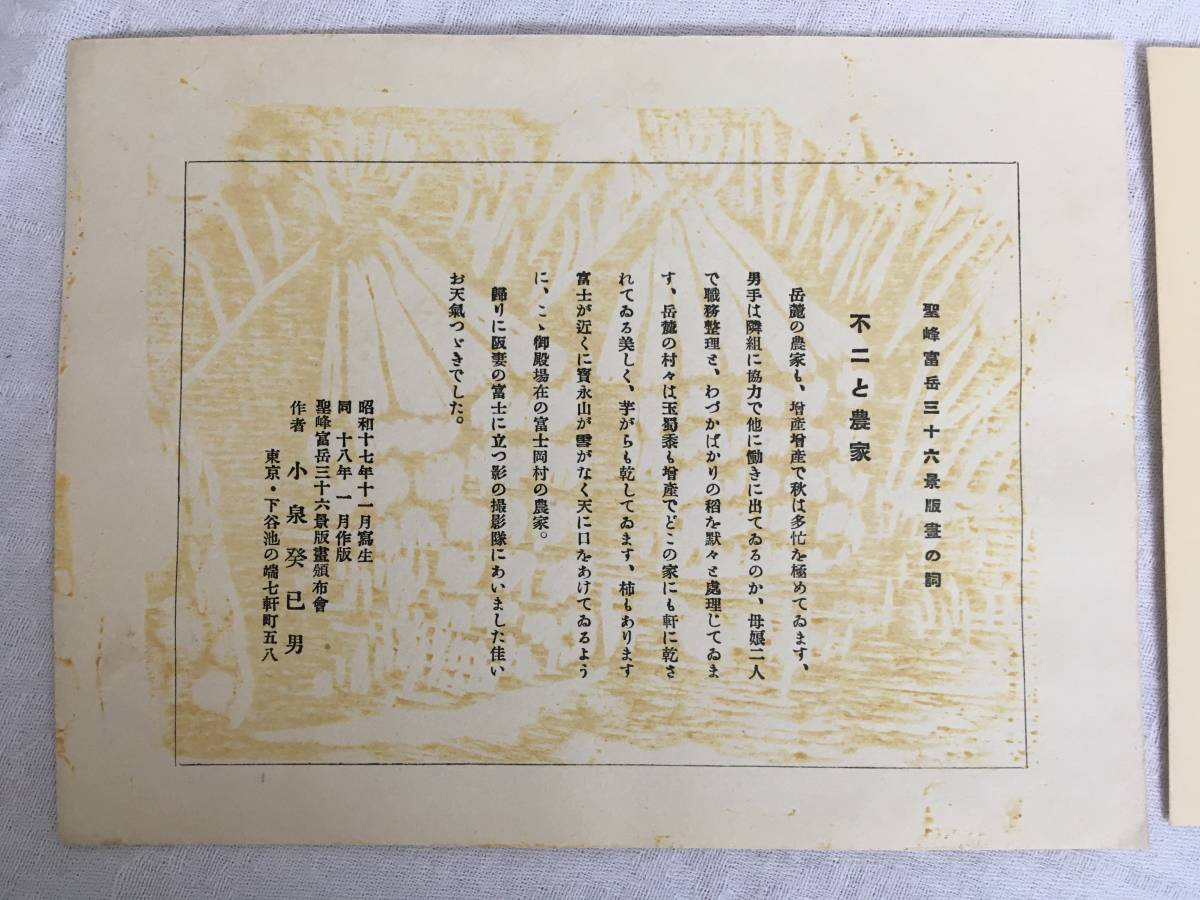 聖峰富岳三十六景版畫の詞
不二と農家
岳麓の農家も、增産增産で秋は多忙を極めてゐます、
男手は隣組に協力で他に働きに出てゐるのか、母娘二人
で職務整理と、わづかばかりの稻を默々と處理してゐま
す、岳麓の村々は玉蜀黍も增産でどこの家にも軒に乾さ
れてゐる美しく、芋がらも乾してゐます、柿もあります
富士が近くに寳永山が雪がなく天に口をあけてゐるよう
に、こゝ御殿場在の富士岡村の農家。
歸りに阪妻の富士に立つ影の撮影隊にあいました佳い
お天氣つゞきでした。
昭和十七年十一月寫生
同 十八年 一月作版
聖峰富岳三十六景版畫頒布會
作者 小泉癸巳男
東京・下谷池の端七軒町五八